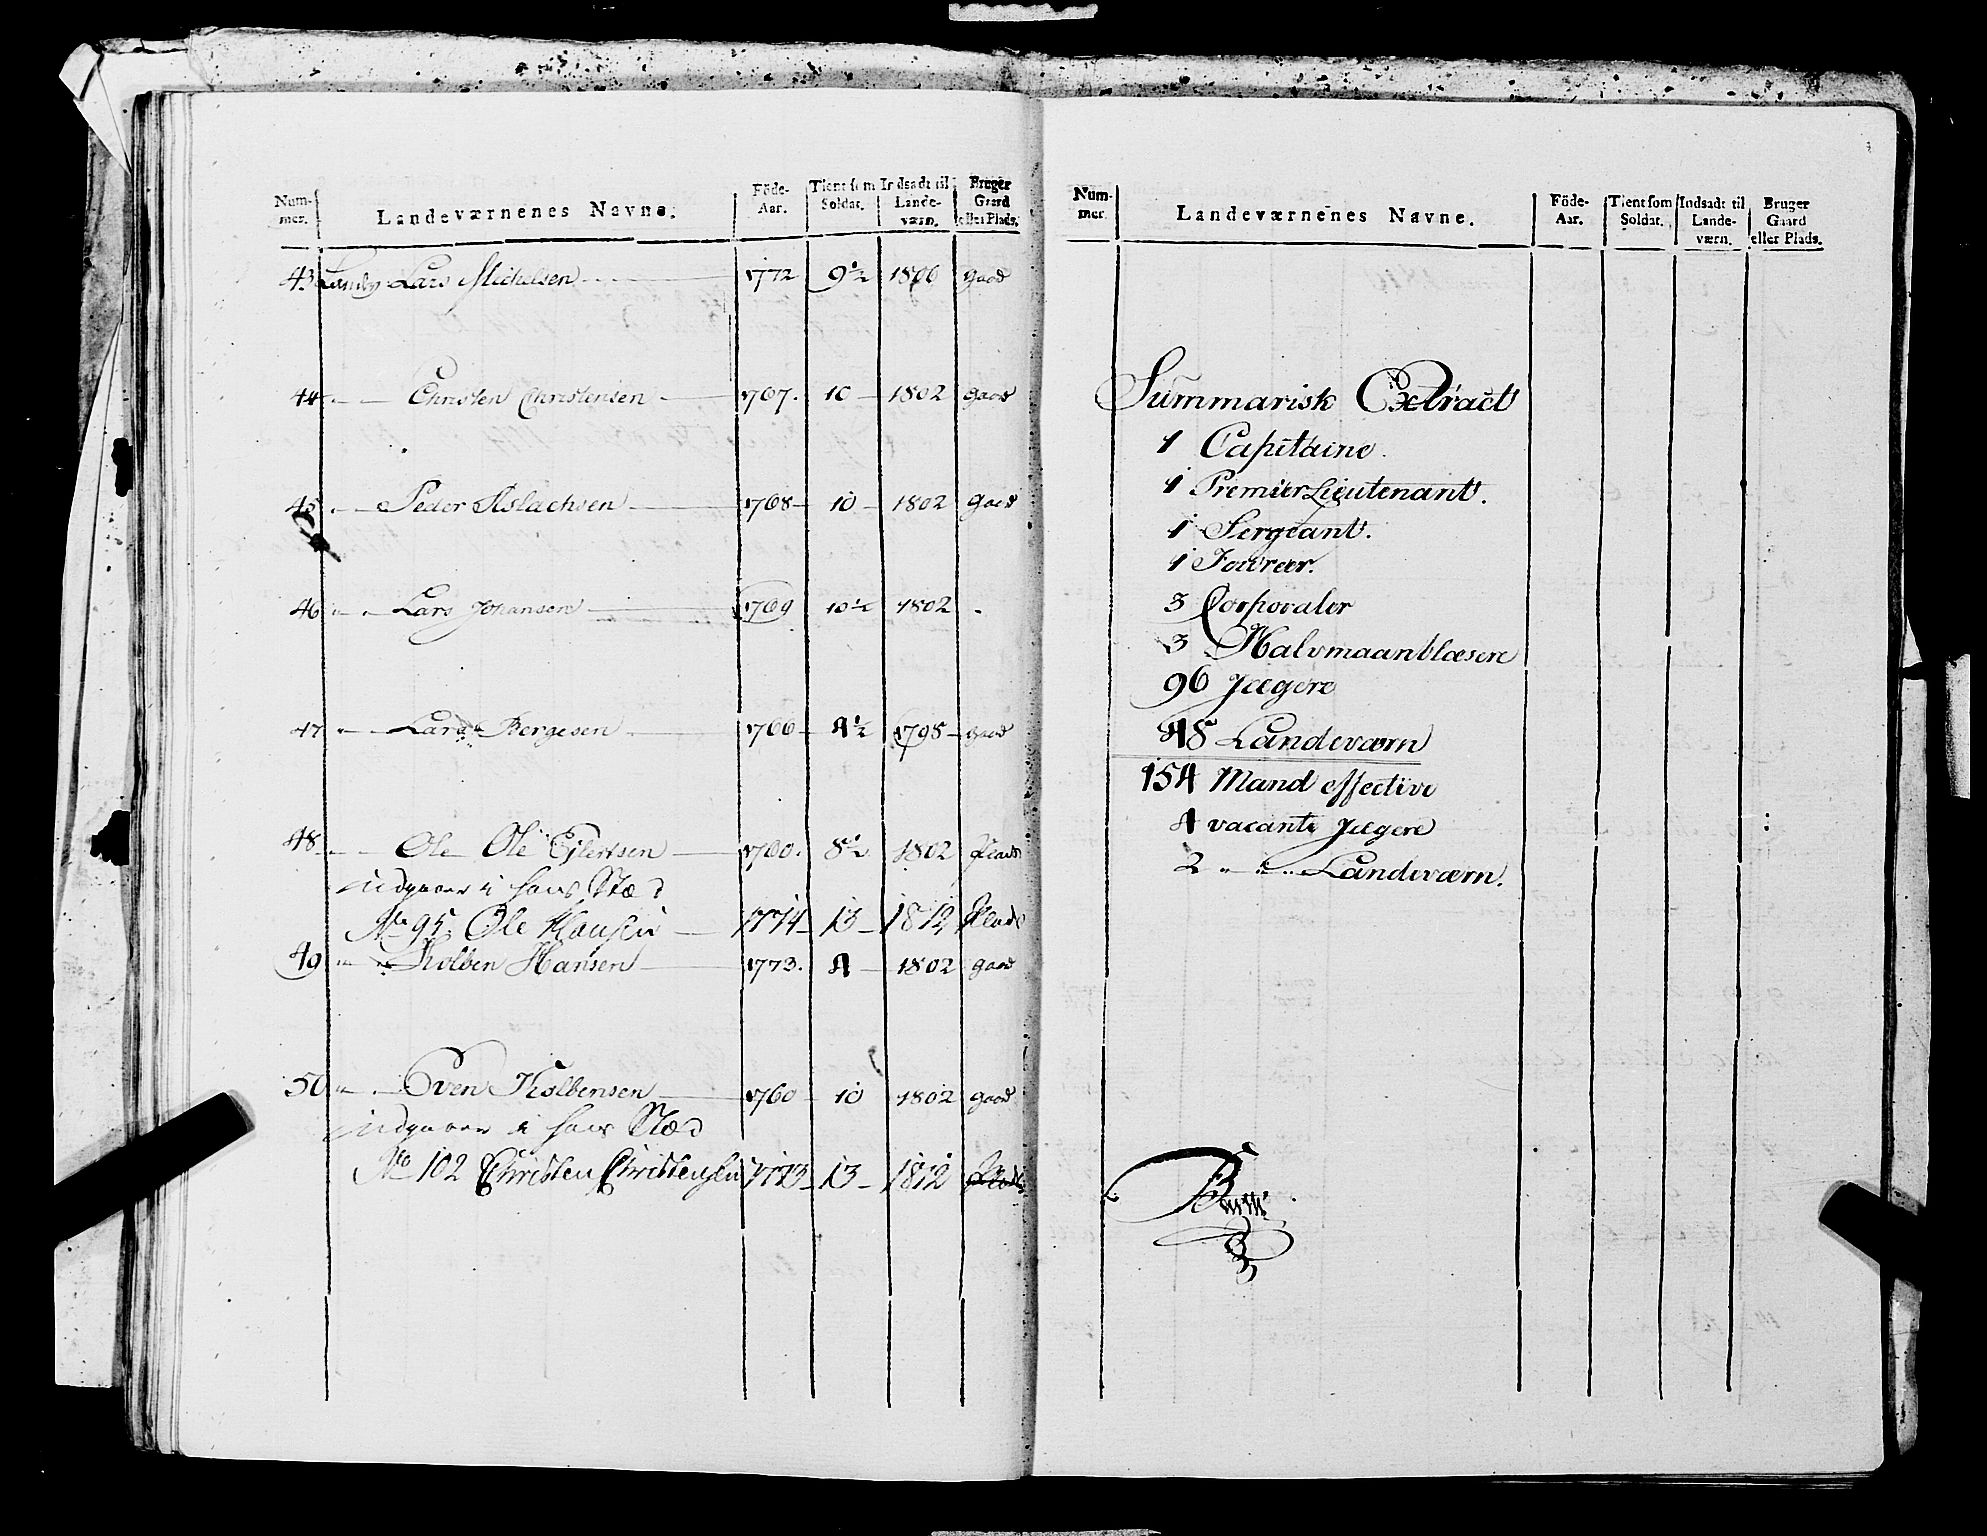 Num- mer. Landeværnenes Navne. Föde- Aar. Tient som Soldat. Indsadt til Lande- værn. Bruger Gaard eller Plads.
43 Landv Lars Michelsen 1772 9½ 1806 gaard
44 " Christen Christensen 1767. 10 1802 gaard
45 " Peder Aslachsen 1768 10 1802 gaard
46 " " Lars Johansen 1769 10½ 1802 -
47 " Lars Bergesen 1766 4½ 1798 gaard
48 " Ole Ole Ejlertsen 1760. 8½ 1802 Plads
indgaaer i hans Stæd
No 95. Ole Hansen 1774 13 1812 Plads
49 " " Kolben Hansen 1773. 4 1802 gaard
50 " " Even Kolbensen 1760 10 1802 gaard
indgaaer i hans Stæd
No 102 Christen Christensen 1773 13 1812 Plads
Num- mer. Landeværnenes Navne. Föde- Aar. Tient som Soldat. Indsadt til Lande- værn. Bruger Gaard eller Plads.
Summarisk Extract
1 Capitaine.
1 Premier Lieutenant.
1 Sergeant.
1 Foureer.
3 Corporaler
3 Halvmaanblæsere
96 Jægere
48 Landeværn
154 Mand effective
4 vacante Jægere
2 " " Landeværn.